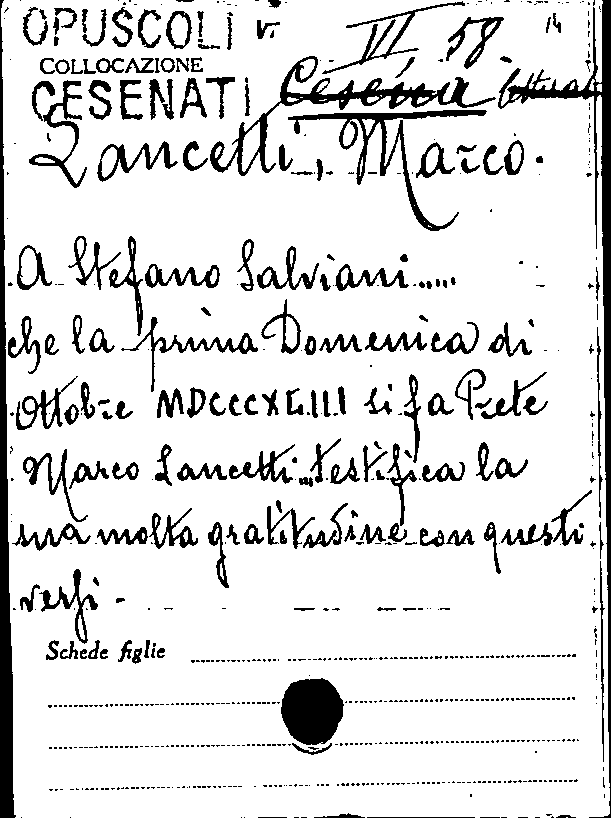 OPUSCOLI V. VI, 58 14
COLLOCAZIONE
CESENATI Cesena
Lancetti, Marco.
A Stefano Salviani.....
che la prima Domenica di
Ottobre MDCCCXCIII si fa Prete
Marco Lancetti...testifica la
sua molta gratitudine con questi
versi -
Schede figlie